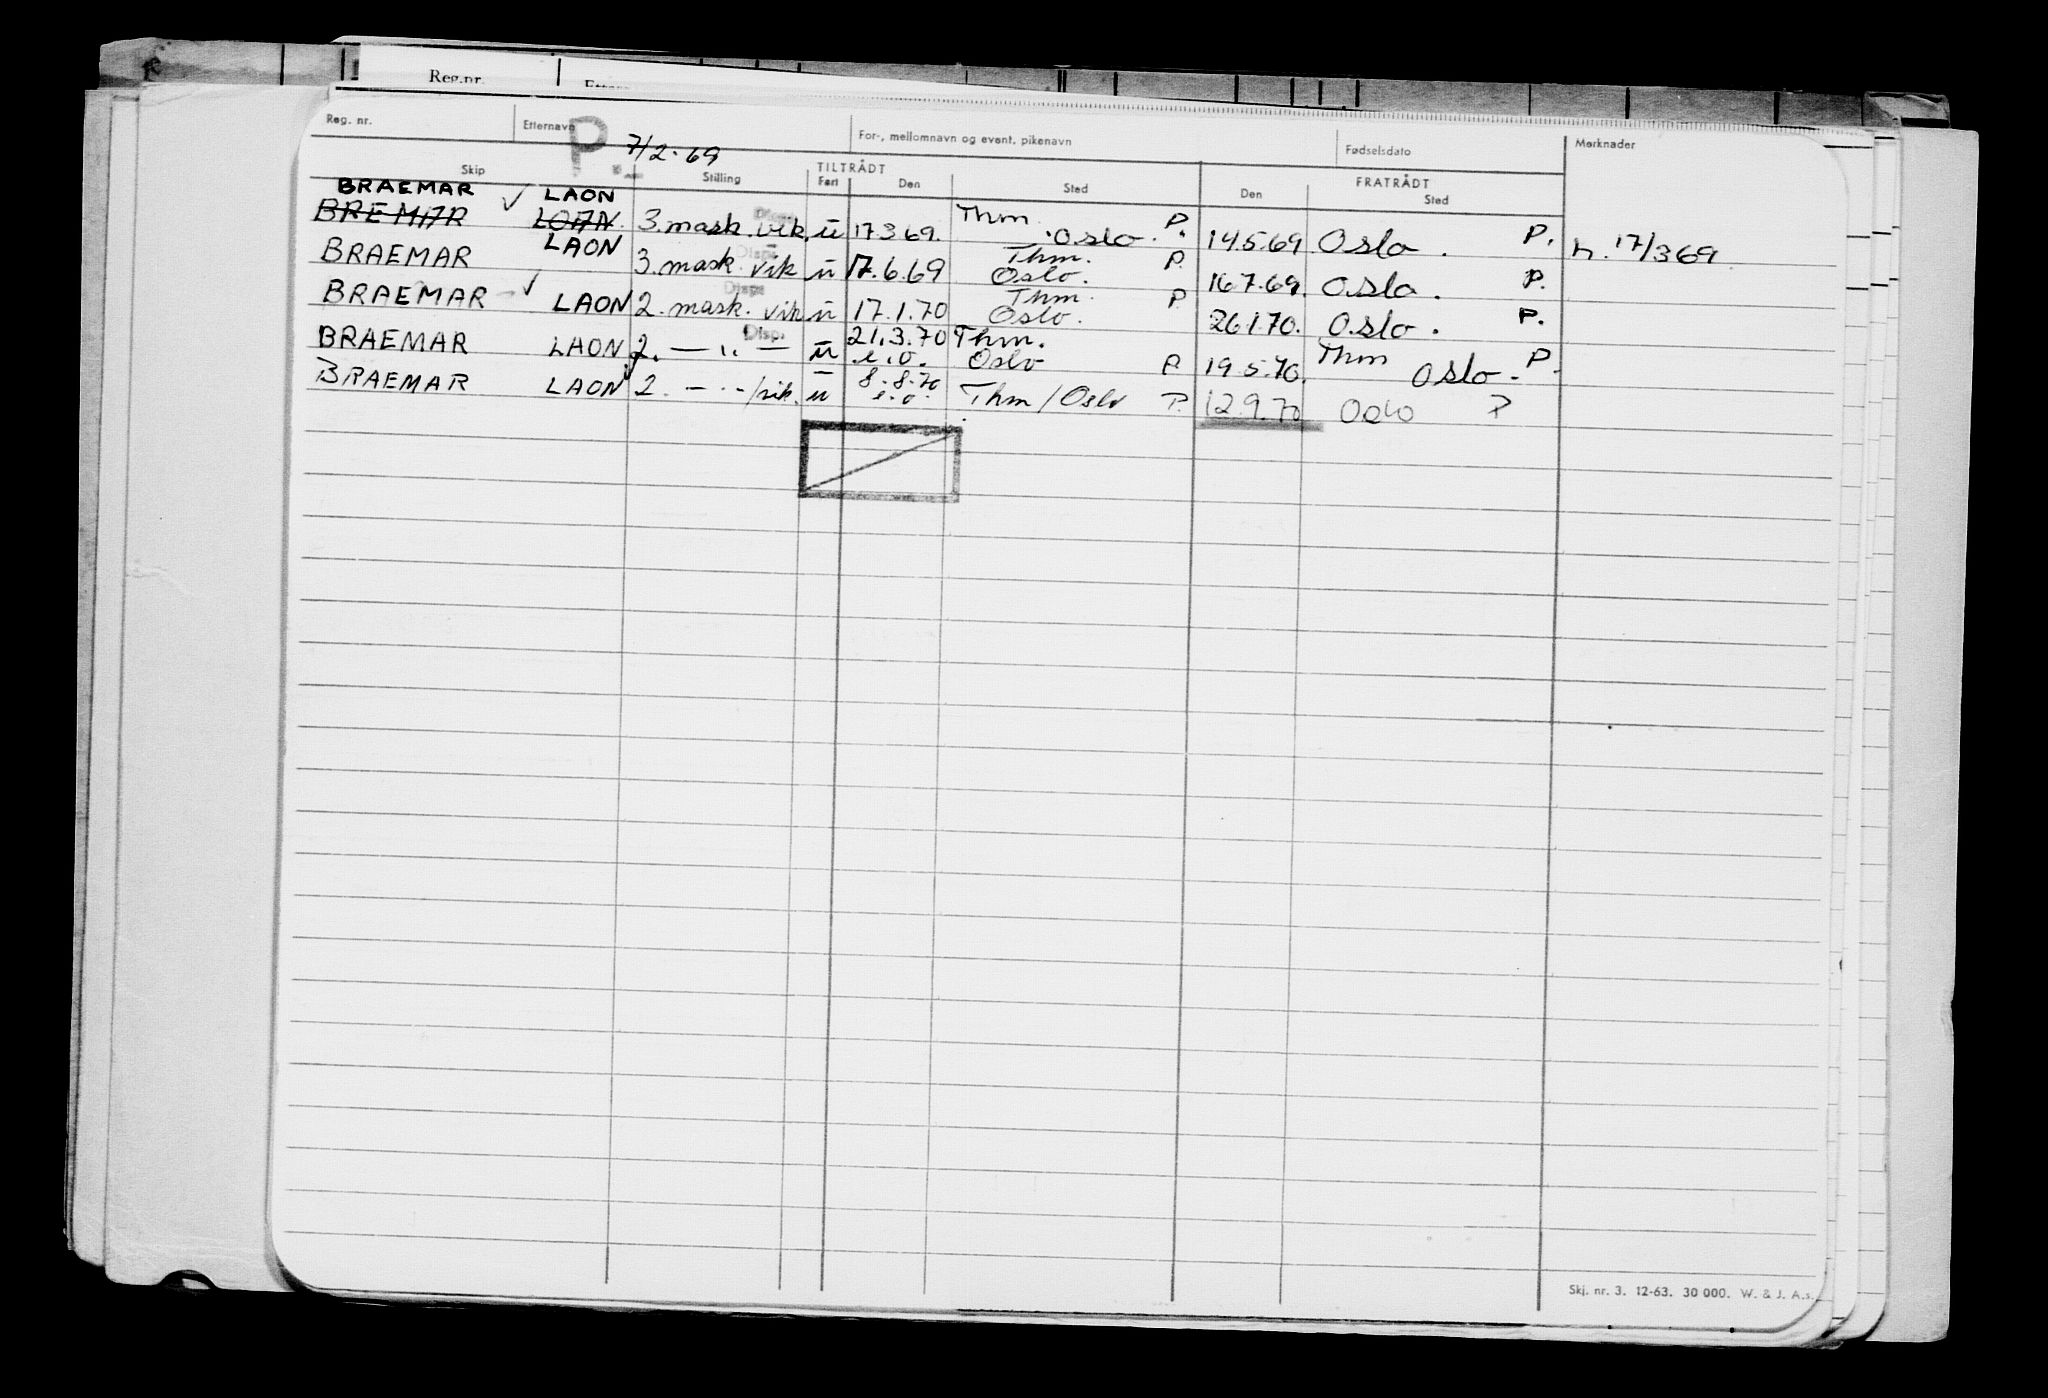 Reg.nr.
Reg. nr. Etternavn For-, mellomnavn og event. pikenavn Fødselsdato Merknader
P. 7/2.69
Skip Stilling TILTRÅDT FRATRÅDT
Fart Den Sted Den Sted
BRAEMAR ✓ LAON
BREMAR LOAN. 3. mask. vik. u 17.3.69. Thm. Oslo. P. 14.5.69 Oslo. P. h. 17/3 69
Disp.
BRAEMAR LAON 3. mask. vik u 17.6.69 Thm. Oslo. P. 16.7.69. Oslo. P.
Disp.
BRAEMAR ✓ LAON 2. mask. vik u 17.1.70 Thm. Oslo. P 26.1.70. Oslo. P.
Disp.
BRAEMAR LAON 2. — " — u 21.3.70 e.o. Thm. Oslo P 19.5.70. Thm Oslo. P.
Disp.
BRAEMAR LAON 2. — " — /vik. u 8.8.70 e.o. Thm / Oslo P. 12.9.70 Oslo P
Skj. nr. 3. 12-63. 30 000. W. & J. A.s.